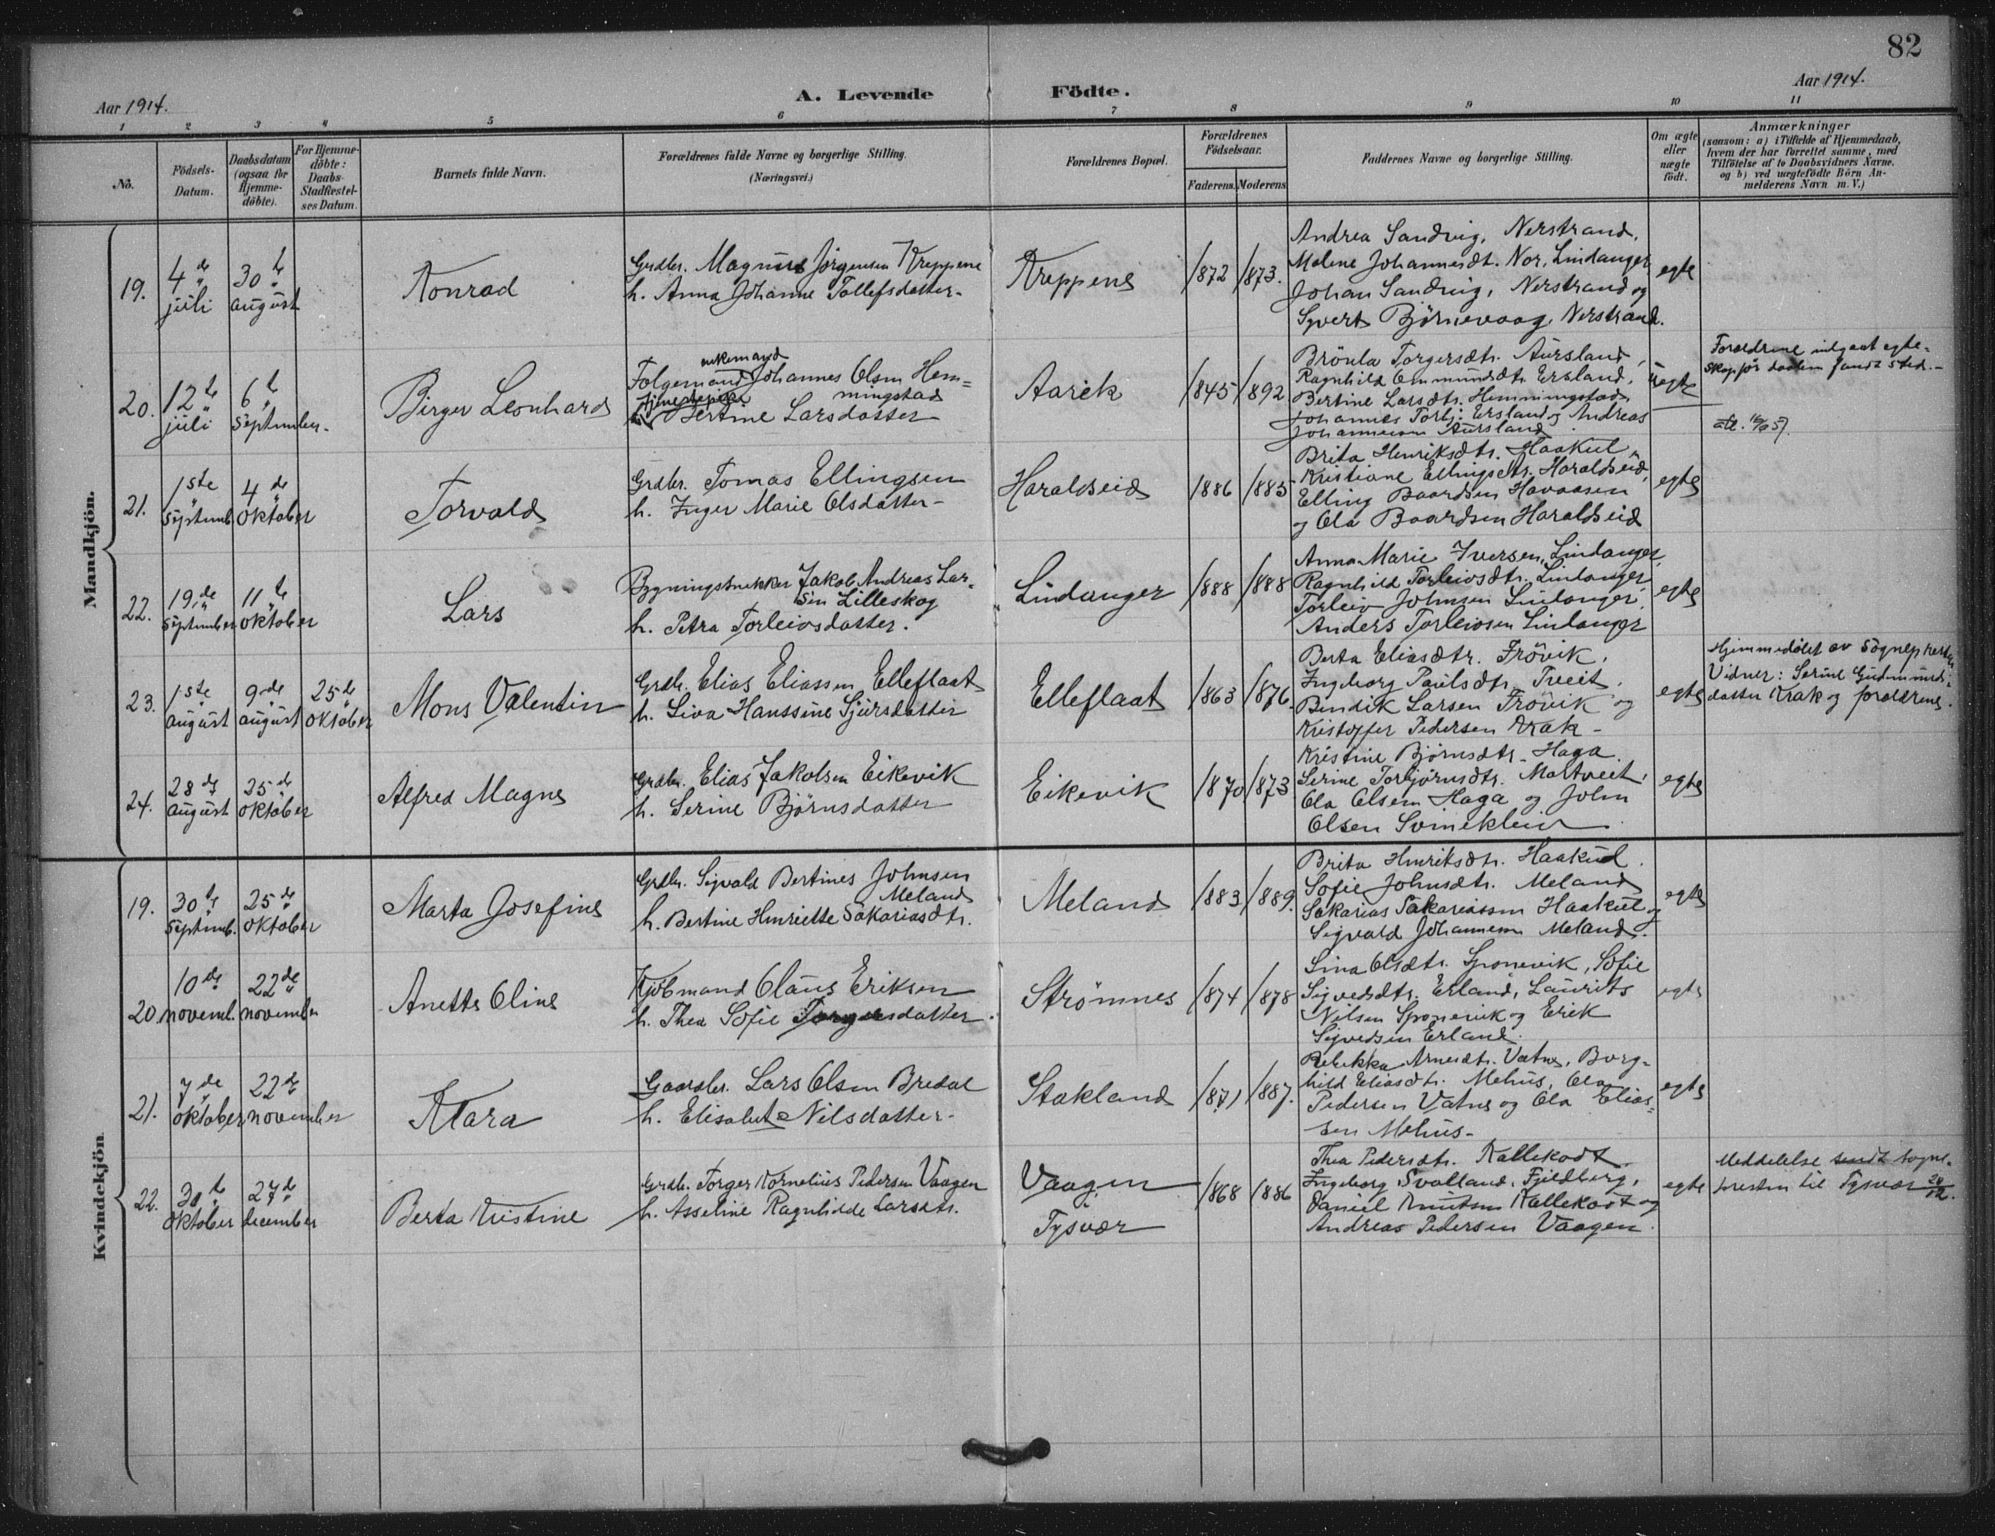 82
Aar 1914. A. Levende Födte. Aar 1914.
1 2 3 4 5 6 7 8 9 10 11
No.
Födsels-
Datum.
Daabsdatum
(ogsaa for
Hjemme-
döbte).
For Hjemme-
döbte:
Daabs-
Stadfæstel-
ses Datum.
Barnets fulde Navn.
Forældrenes fulde Navne og borgerlige Stilling.
(Næringsvei.)
Forældrenes Bopæl.
Forældrenes
Födselsaar.
Faderens. Moderens
Faddernes Navne og borgerlige Stilling.
Om ægte
eller
uægte
født.
Anmærkninger
(saasom: a) i Tilfælde af Hjemmedaab,
hvem der har forrettet samme, med
Tilføielse af to Daabsvidners Navne,
og b) ved uægtefødte Börn An-
melderens Navn m. V.)
Mandkjön.
19.
4de
juli
30te
august
Konrad
Grdbr. Magnus Jörgensen Kreppene
h. Anna Johanne Tollefsdatter-
Kreppene
1872 1873.
Andrea Sandvig, Nerstrand,
Malene Johannesdt. Nor, Lindanger
Johan Sandvig, Nerstrand og
Syvert Björnevaag, Nerstrand.
egte
20.
12te
juli
6te
September-
Birger Leonhard
enkemand
Folgemand Johannes Olsen Hem-
mingstad
Bertine Larsdatter
Aarek
1845 1892
Torgersdtr. Aursland,
Ragnhild Ommundsdtr Ersland,
Bertine Larsdt. Hemmingstad
Johannes Torbj. Ersland og Andreas
Johannesen Aursland
uegte
Forældrene indgaat egte-
skap før daaben fandt sted.-
21.
1ste
Septemb.
4de
Oktober
Torvald
Grdbr. Tomas Ellingsen
h. Inger Marie Olsdatter-
Haraldseid
1886 1885
Brita Henriksdtr. Haakul,
Kristiane Ellingsdtr. Haraldseid,
Elling Baardsen Havaasen
og Ola Baardsen Haraldseid
egte
22.
19de
September
11te
Oktober
Lars
Bygningsnekker Jakob Andreas Lar-
sen Lilleskog
h. Petra Torleivsdatter.
Lindanger
1888 1888
Anna Marie Iversen, Lindanger,
Ragnhild Torleivsdtr. Lindanger
Torleiv Johnsen Lindanger,
Anders Torleivsen Lindanger
egte
23.
1ste
august
9de
august
25de
Oktober
Mons Valentin
Grdbr. Elias Eliassen Elleflaat
h. Siva Hanssine Sjursdatter
Elleflaat
1863 1876.
Berta Eliasdtr. Frövik,
Ingeborg Paulsdtr. Tveit,
Bendik Larsen Frövik og
Kristoffer Pedersen Krak-
egte
Hjemmedöbt av Sogneprersten
Vidner: Serine Gudmunds-
datter Krak og forældrene.
24.
28de
august
25de
Oktober
Alfred Magne
Grdbr. Elias Jakobsen Eikevik
h. Serine Björnsdatter
Eikevik
1870 1873
Kristine Björnsdtr. Haga.
Serine Torbjörnsdtr. Mortveit,
Ola Olsen Haga og John
Olsen Svineklein
egte
Kvindekjön.
19.
30te
Septemb.
25de
Oktober
Marta Josefine
Grdbr. Sigvald Bertines Johnsen
Meland
h. Bertine Henriette Sakariasdtr.
Meland
1883 1889.
Brita Henriksdtr. Haakul.
Sofie Johnsdtr. Meland
Sakarias Sakariassen Haakul og
Sigvald Johannesen Meland.
egte
20.
10de
novemb.
22de
november
Anette Oline
Kjöbmand Claus Eriksen
h. Thea Sofie Torgersdatter.
Strömnes
1874 1878
Sina Olsdtr. Sponevik, Sofie
Sigvedsdtr. Erland, Laurits
Nilsen Sponevik og Erik
Sigvedsen Erland.
egte
21.
7de
Oktober
22de
november
Klara
Gaardbr. Lars Olsen Bredal
h. Elisabet Nilsdatter-
Stakland
1871 1887.
Rebekka Arnesdtr. Vatne, Borg-
hild Eliasdtr. Mehus, Ola
Pedersen Vatne og Ola Elias-
sen Mehus-
egte
22.
30te
Oktober
27de
december
Berta Kristine
Grdbr. Torger Kornelius Pedersen Vaagen
h. Asseline Ragnhilde Larsdtr.
Vaagen
Tysvær
1868 1886
Thea Pedersdtr. Kallekodt
Ingeborg Svolland, Fjeldberg,
Daniel Knutsen Kallekodt og
Andreas Pedersen Vaagen.
egte
Meddelelse sendt sogne-
presten til Tysvær 28/12.